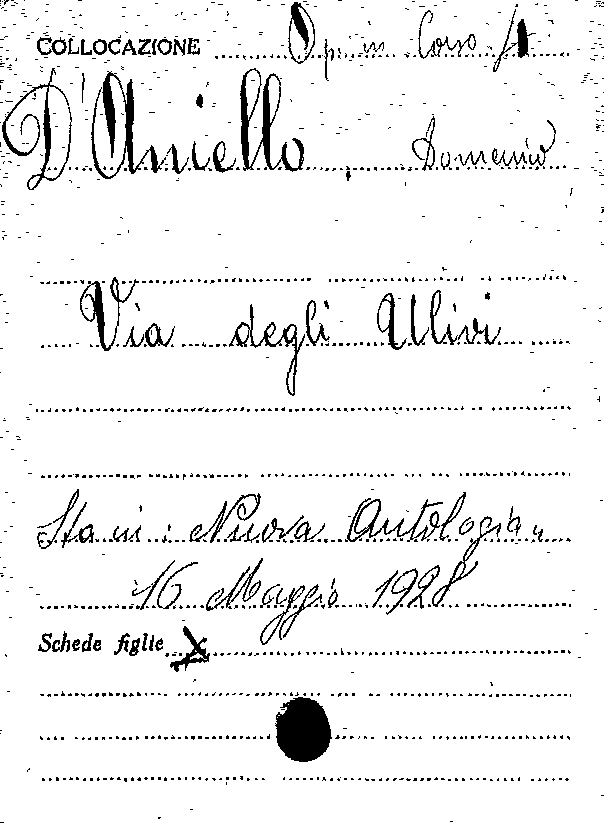 COLLOCAZIONE Op. in Corso
D'Aniello, Domenico
Via degli Ulivi
Sta in: Nuova Antologia"
16 Maggio 1928
Schede figlie X